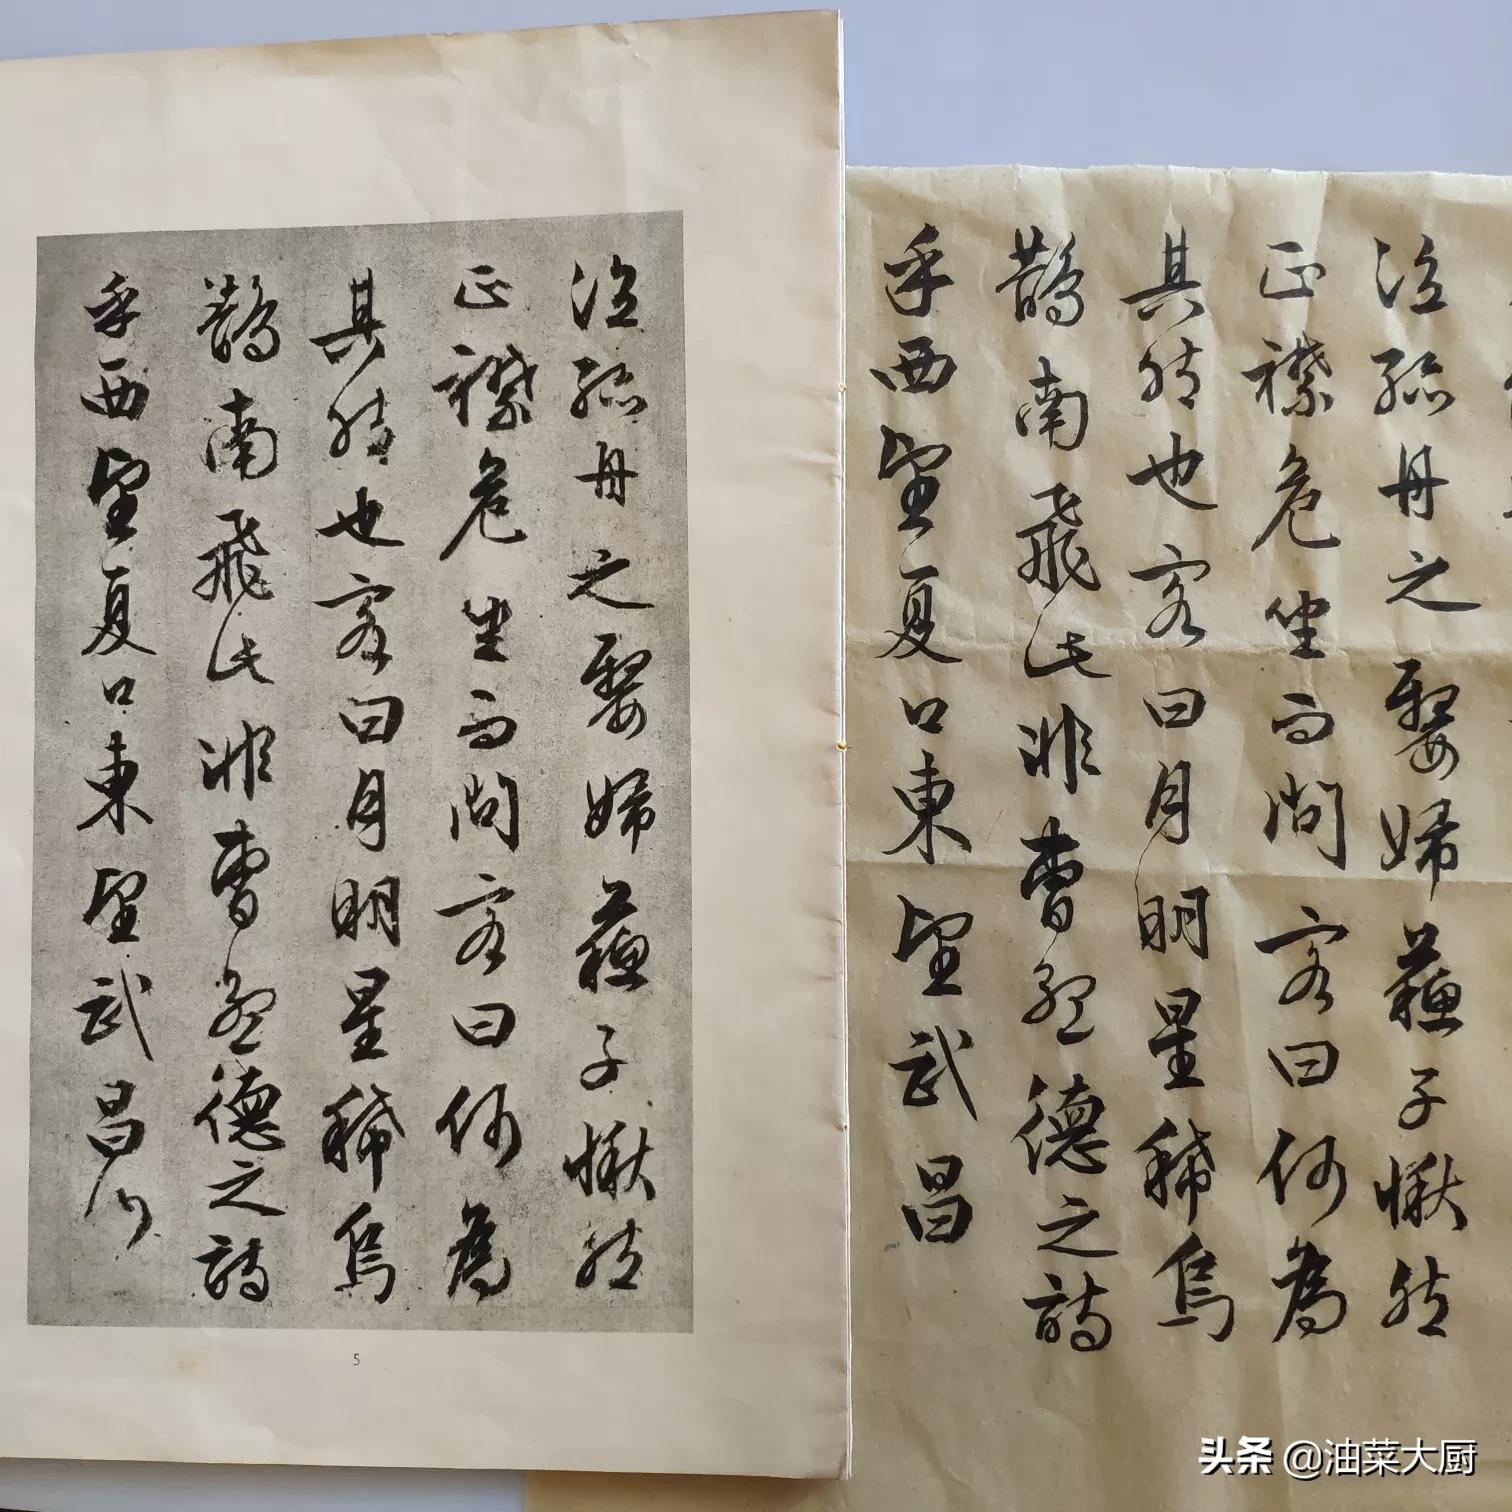 泣孤舟之嫠婦蘇子愀然
正襟危坐而問客曰何為
其然也客曰月明星稀烏
鵲南飛此非曹孟德之詩
乎西望夏口東望武昌山
5
泣孤舟之嫠婦蘇子愀然
正襟危坐而問客曰何為
其然也客曰月明星稀烏
鵲南飛此非曹孟德之詩
乎西望夏口東望武昌
头条 @油菜大厨